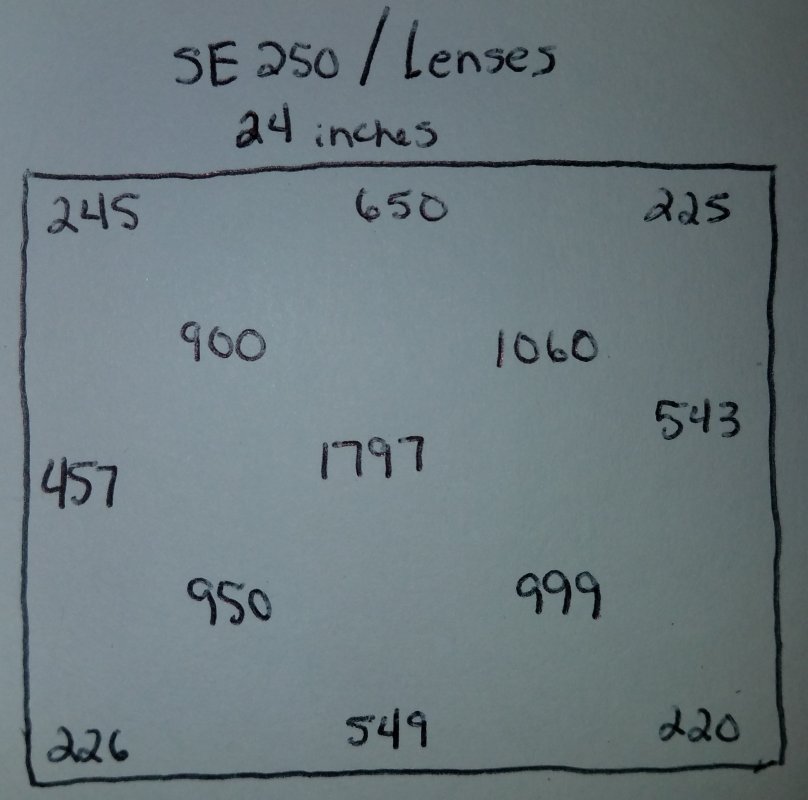 SE 250 / Lenses
24 inches
245 650 225
900 1060
543
457 1797
950 999
226 549 220